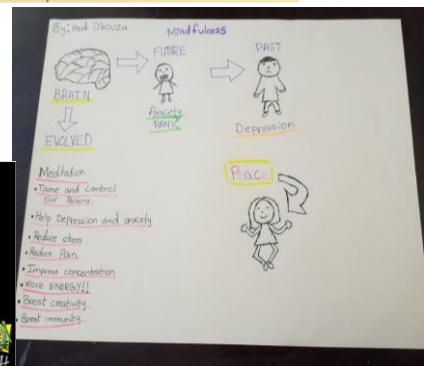 Mindfulness
FUTURE
PAST
BRAIN
Anxiety
PANIC
Depression
EVOLVED
Meditation
• Tame and Control
Our Brains.
• Help Depression and anxiety
• Reduce stress
• Reduce Pain.
• Improve concentration
• More ENERGY!!
• Boost creativity.
• Boost immunity.
Peace